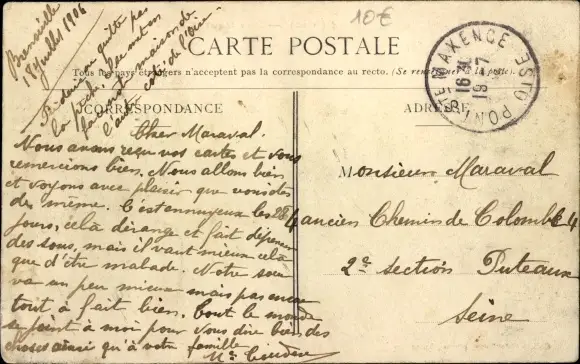 Boranville
18 Juillet 1906
10€
CARTE POSTALE
Tous les pays étrangers n'acceptent pas la correspondance au recto. (Se renseigner à la poste).
PONT STE MAXENCE
16
19 7
ne quitte pas
la pêche,
maison de
l'autre coté de l'Oise
CORRESPONDANCE
ADRESSE
Cher Maraval.
Nous avons reçu vos cartes et vous
remercions bien. Nous allons bien
et voyons avec plaisir que vous êtes
de même. C'est ennuyeux les 28
jours, cela dérange et fait dépenser
des sous, mais il vaut mieux cela
que d'être malade. Notre
va un peu mieux mais pas encore
tout à fait bien. Tout le monde
se joint à moi pour vous dire bien des
choses ainsi qu'à votre famille
Monsieur Maraval
4 ancien Chemin de Colombes 4
2e section Puteaux
Seine